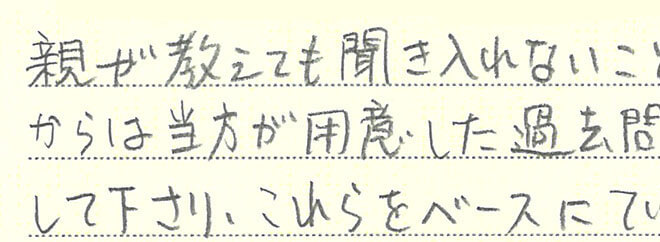 親が教えても聞き入れないこと
からは当方が用意した過去問
して下さり、これらをベースにてい